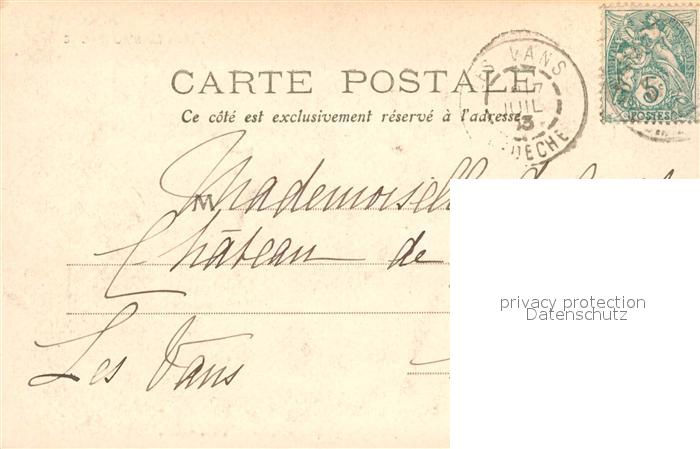 CARTE POSTALE
Ce côté est exclusivement réservé à l'adresse
LES VANS
JUIL
ARDECHE
5
POSTES
M
Mademoiselle
Château de
Les Vans
privacy protection
Datenschutz